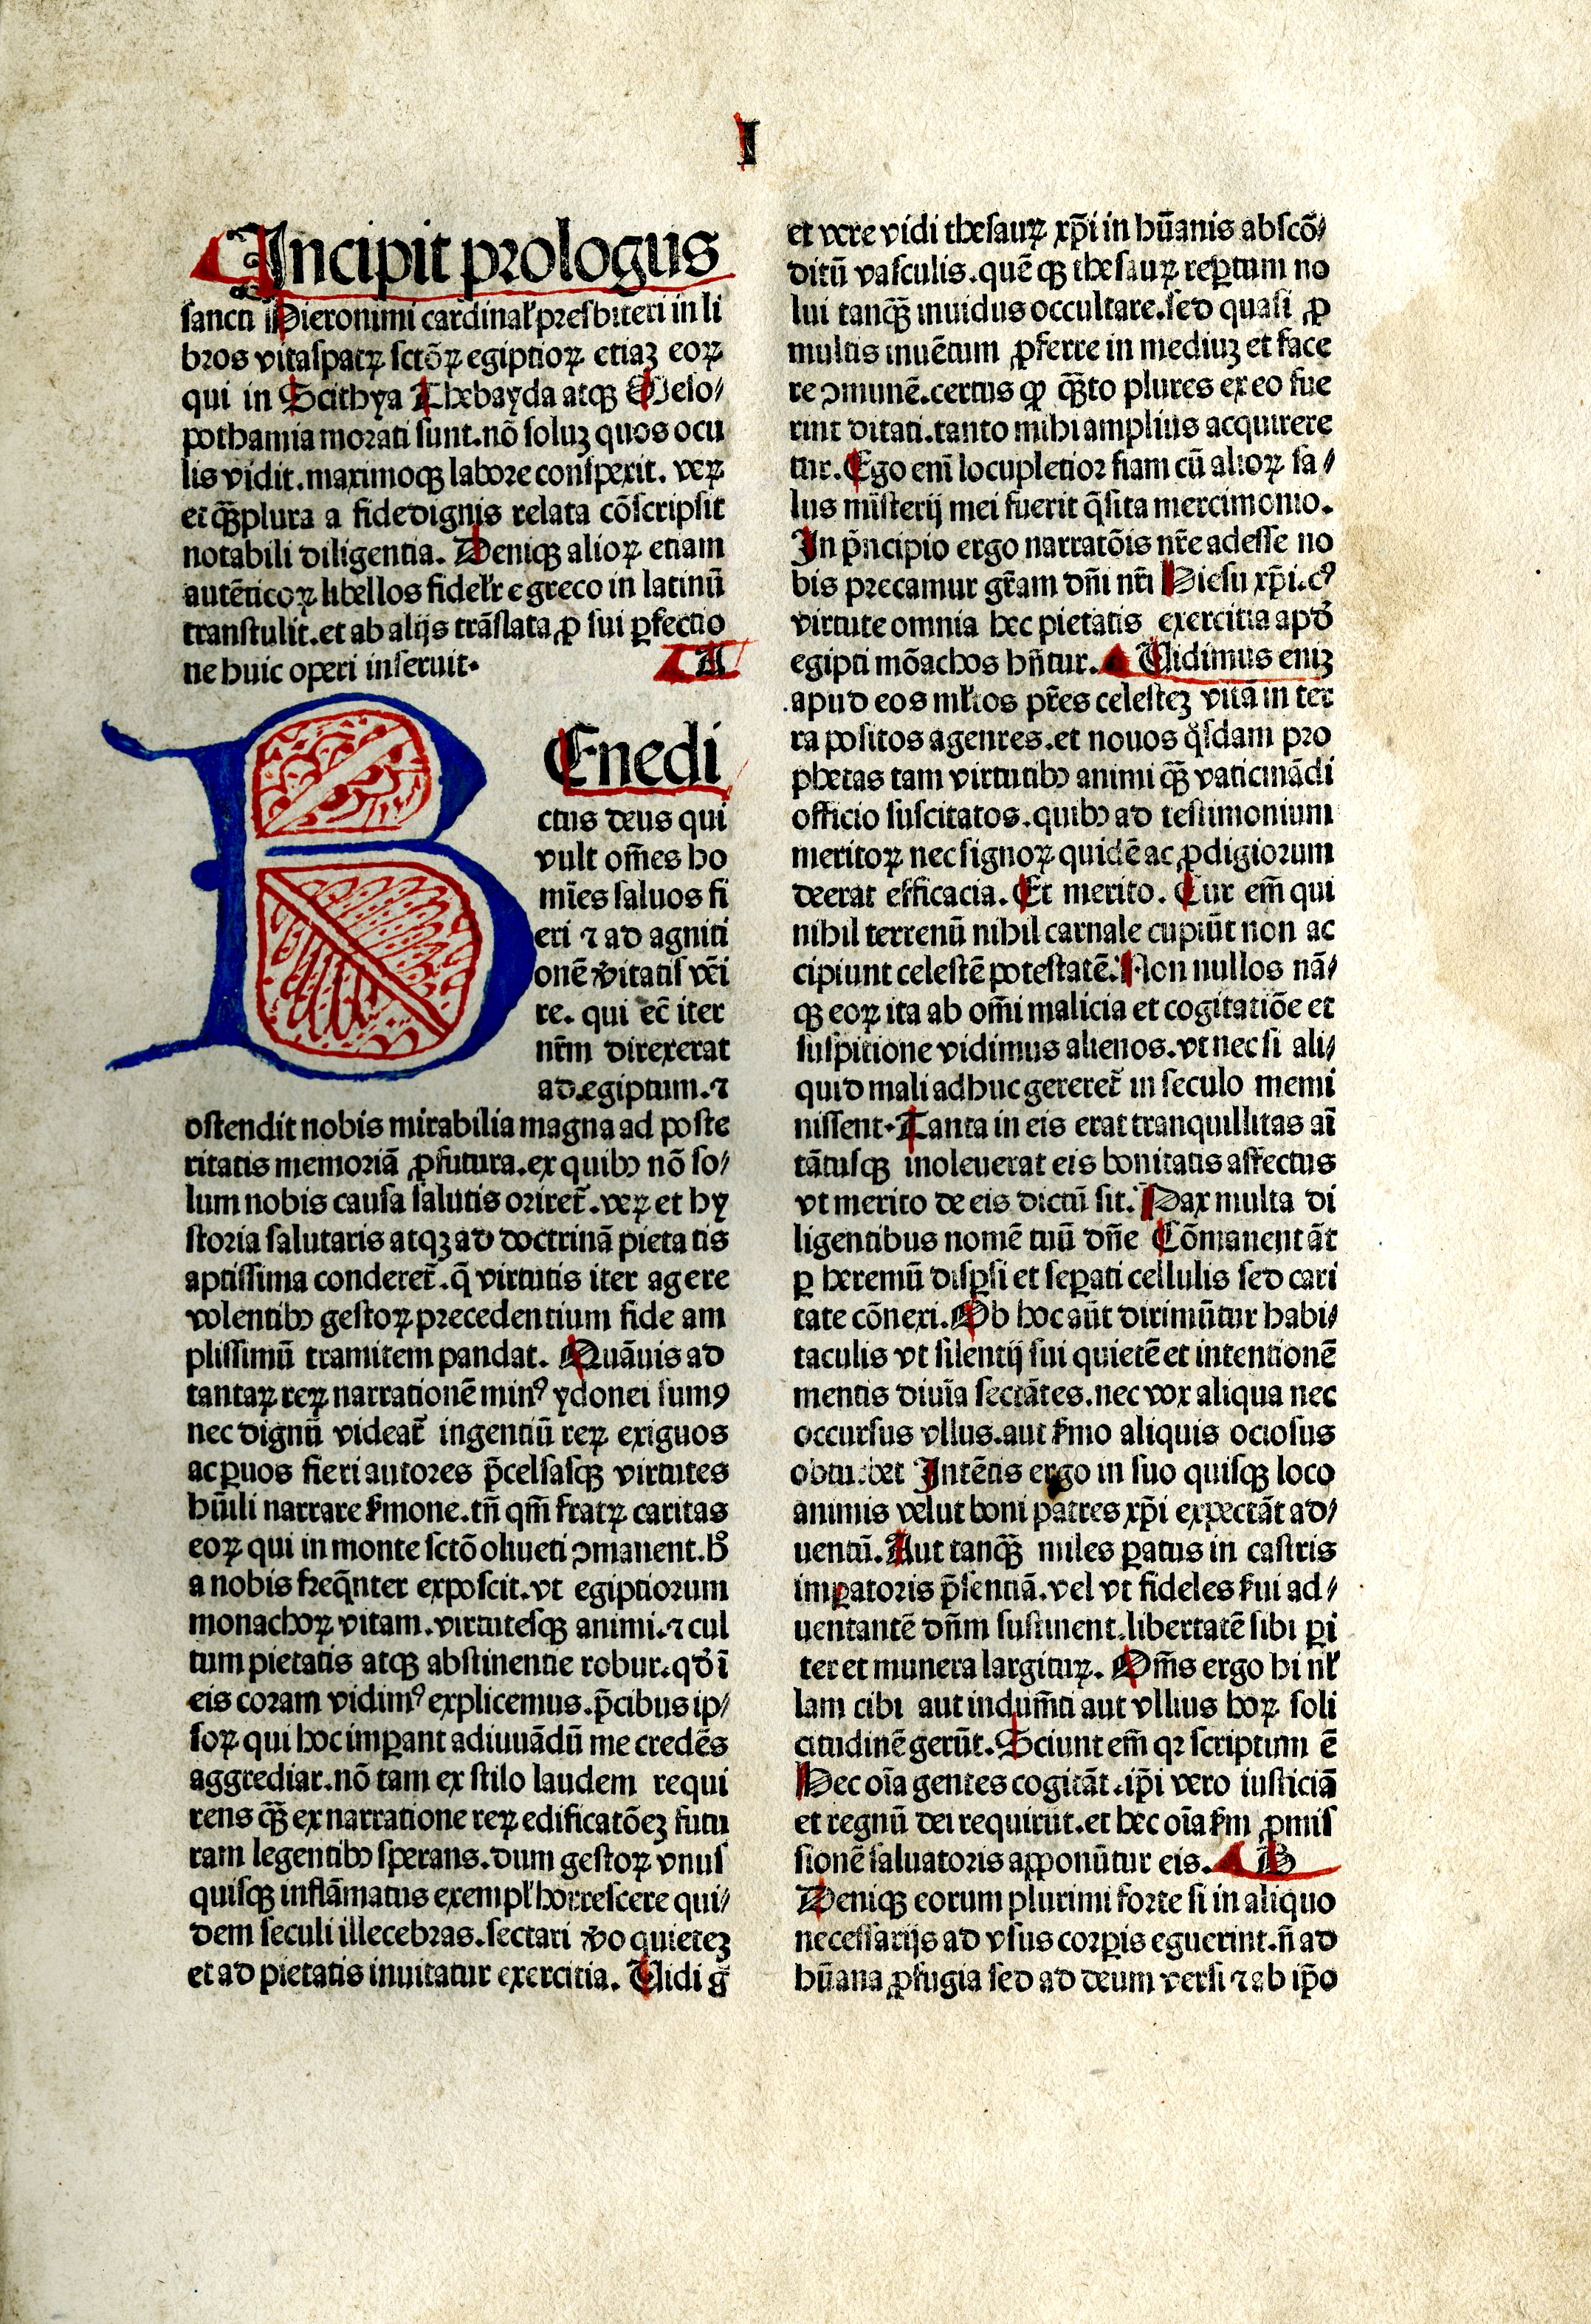 I
Incipit prologus
sancti Hieronimi cardinal̕ presbiteri in li
bros vitaspatꝝ sctōꝝ egiptioꝝ etiaꝫ eoꝝ
qui in Scithya Thebayda atqꝫ Meso⸗
pothamia morati sunt. nō soluꝫ quos ocu
lis vidit. maximoqꝫ labore conspexit. veꝝ
et qꝫplura a fidedignis relata cōscripsit
notabili diligentia. Deniqꝫ alioꝝ etiam
autēticoꝝ libellos fidel̕r e greco in latinū
transtulit. et ab alijs trāslata ꝓ sui ꝑfectio
ne huic operi inseruit.
A
BEnedi
ctus deus qui
vult om̄es ho
mīes saluos fi
eri ⁊ ad agniti
onē v̄itatis vēi
re. qui ec̄ iter
nr̄m direxerat
ad egiptum. ⁊
ostendit nobis mirabilia magna ad poste
ritatis memoriā ꝓfutura. ex quibꝰ nō so⸗
lum nobis causa salutis oriret̄. veꝝ et hy
storia salutaris atqꝫ ad doctrinā pietatis
aptissima conderet̄. q̄ virtutis iter agere
volentibꝰ gestoꝝ precedentium fide am
plissimū tramitem pandat. Quāuis ad
tantaꝝ reꝝ narrationē minꝰ ydonei sumꝰ
nec dignū videat̄ ingentiū reꝝ exiguos
ac ꝑuos fieri autores p̄celsasqꝫ virtutes
hūili narrare s̄mone. tn̄ qm̄ fratꝝ caritas
eoꝝ qui in monte sctō oliueti ꝯmanent. hͦ
a nobis freq̄nter exposcit. vt egiptiorum
monachoꝝ vitam. virtutesqꝫ animi. ⁊ cul
tum pietatis atqꝫ abstinentie robur. qd̄ ī
eis coram vidimꝰ explicemus. p̄cibus ip⸗
soꝝ qui hoc imꝑant adiuuādū me credēs
aggrediar. nō tam ex stilo laudem requi
rens qꝫ ex narratione reꝝ edificatōeꝫ futu
ram legentibꝰ sperans. dum gestoꝝ vnus
quisqꝫ inflāmatus exempl̕ horrescere qui⸗
dem seculi illecebras. sectari v̄o quieteꝫ
et ad pietatis inuitatur exercitia. Uidi g̊
et vere vidi thesauꝝ xp̄i in hūanis abscō⸗
ditū vasculis. quē qꝫ thesauꝝ reꝑtum no
lui tanqꝫ inuidus occultare. sed quasi ꝓ
multis inuētum ꝓferre in mediuꝫ et face
re ꝯmunē. certus ꝙ qꝫto plures ex eo fue
rint ditati. tanto mihi amplius acquirere
tur. Ego enī locupletior fiam cū alioꝝ sa⸗
lus mīsterij mei fuerit q̄sita mercimonio.
In p̄ncipio ergo narratōis nr̄e adesse no
bis precamur gr̄am dn̄i nr̄i Hiesu xp̄i. cꝰ
virtute omnia hec pietatis exercitia apd̄
egipti mōachos hn̄tur. Uidimus eniꝫ
apud eos ml̕tos pr̄es celesteꝫ vitā in ter
ra positos agentes. et nouos q̊sdam pro
phetas tam virtutibꝰ animi qꝫ vaticinādi
officio suscitatos. quibꝰ ad testimonium
meritoꝝ nec signoꝝ quidē ac ꝓdigiorum
deerat efficacia. Et merito. Cur em̄ qui
nihil terrenū nihil carnale cupiūt non ac
cipiunt celestē potestatē. Non nullos nā⸗
qꝫ eoꝝ ita ab om̄i malicia et cogitatiōe et
suspitione vidimus alienos. vt nec si ali⸗
quid mali adhuc gereret̄ in seculo memi
nissent. Tanta in eis erat tranquillitas aī
tātusqꝫ inoleuerat eis bonitatis affectus
vt merito de eis dictū sit. Pax multa di
ligentibus nomē tuū dn̄e Cōmanent āt
ꝑ heremū disꝑsi et seꝑati cellulis sed cari
tate cōnexi. Ob hoc aūt dirimūtur habi⸗
taculis vt silentij sui quietē et intentionē
mentis diuīa sectātes. nec vox aliqua nec
occursus vllus. aut s̄mo aliquis ociosus
obturbet Intētis ergo in suo quisqꝫ loco
animis velut boni patres xp̄i expectāt ad⸗
uentū. Aut tanqꝫ miles ꝑatus in castris
imꝑatoris p̄sentiā. vel vt fideles s̄ui ad⸗
uentantē dn̄m sustinent. libertatē sibi ꝑi
ter et munera largituꝝ. Om̄s ergo hi nl̕
lam cibi aut indum̄ti aut vllius hoꝝ soli
citudinē gerūt. Sciunt em̄ qꝛ scriptum ē
Hec oīa gentes cogitāt. ip̄i vero iusticiā
et regnū dei requirūt. et hec oīa s̄m ꝓmis
sionē saluatoris apponūtur eis. B
Deniqꝫ eorum plurimi forte si in aliquo
necessarijs ad vsus corꝑis eguerint. n̄ ad
hūana ꝓfugia sed ad deum versi ⁊ ab ip̄o